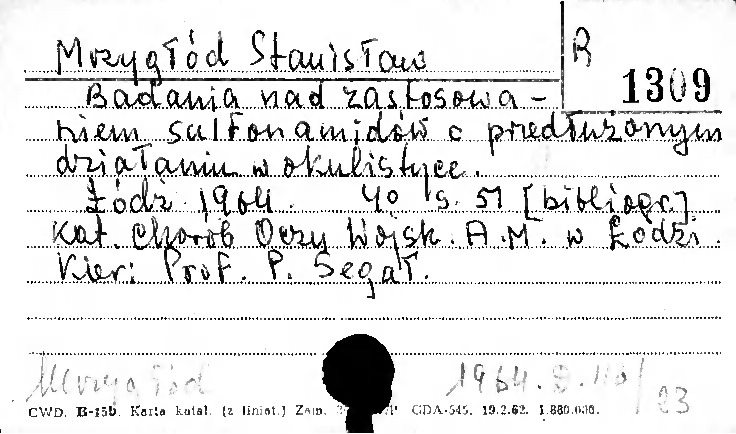 Mrzygłód Stanisław
R
1309
Badania nad zastosowa-
niem sulfonamidów o przedłużonym
działaniu w okulistyce.
Łódź 1964. 4o s. 51 [bibliogr.]
Kat. Chorób Oczu Wojsk. A.M. w Łodzi.
Kier: Prof. P. Segał.
Mrzygłód
1964. D. 40/23
CWD. B-15b. Karta katal. (z liniat.) Zam. CDA-545. 19.2.62. 1.880.000.